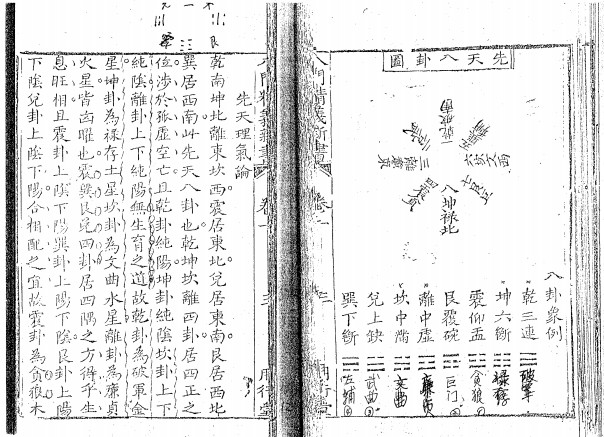 先天八卦圖
八卦象例
乾三連 破軍
坤六斷 祿存
震仰盂 貪狼
艮覆碗 巨门
離中虛 廉貞
坎中滿 文曲
兌上缺 武曲
巽下斷 左輔
八坤祿北
先天理氣論
乾南坤北離東坎西震居東北兌居東南艮居西北
巽居西南此先天八卦也乾坤坎離四卦居四正之
位涉於孤虛空亡且乾卦純陽坤卦純陰坎卦上下
純陰離卦上下純陽無生育之道故乾卦為破軍金
星坤卦為祿存土星坎卦為文曲水星離卦為廉貞
火星皆凶曜也震巽艮兌四卦居四隅之方得乎生
息旺相且震卦上陰下陽巽卦上陽下陰艮卦上陽
下陰兌卦上陰下陽合相配之宜故震卦為貪狼木